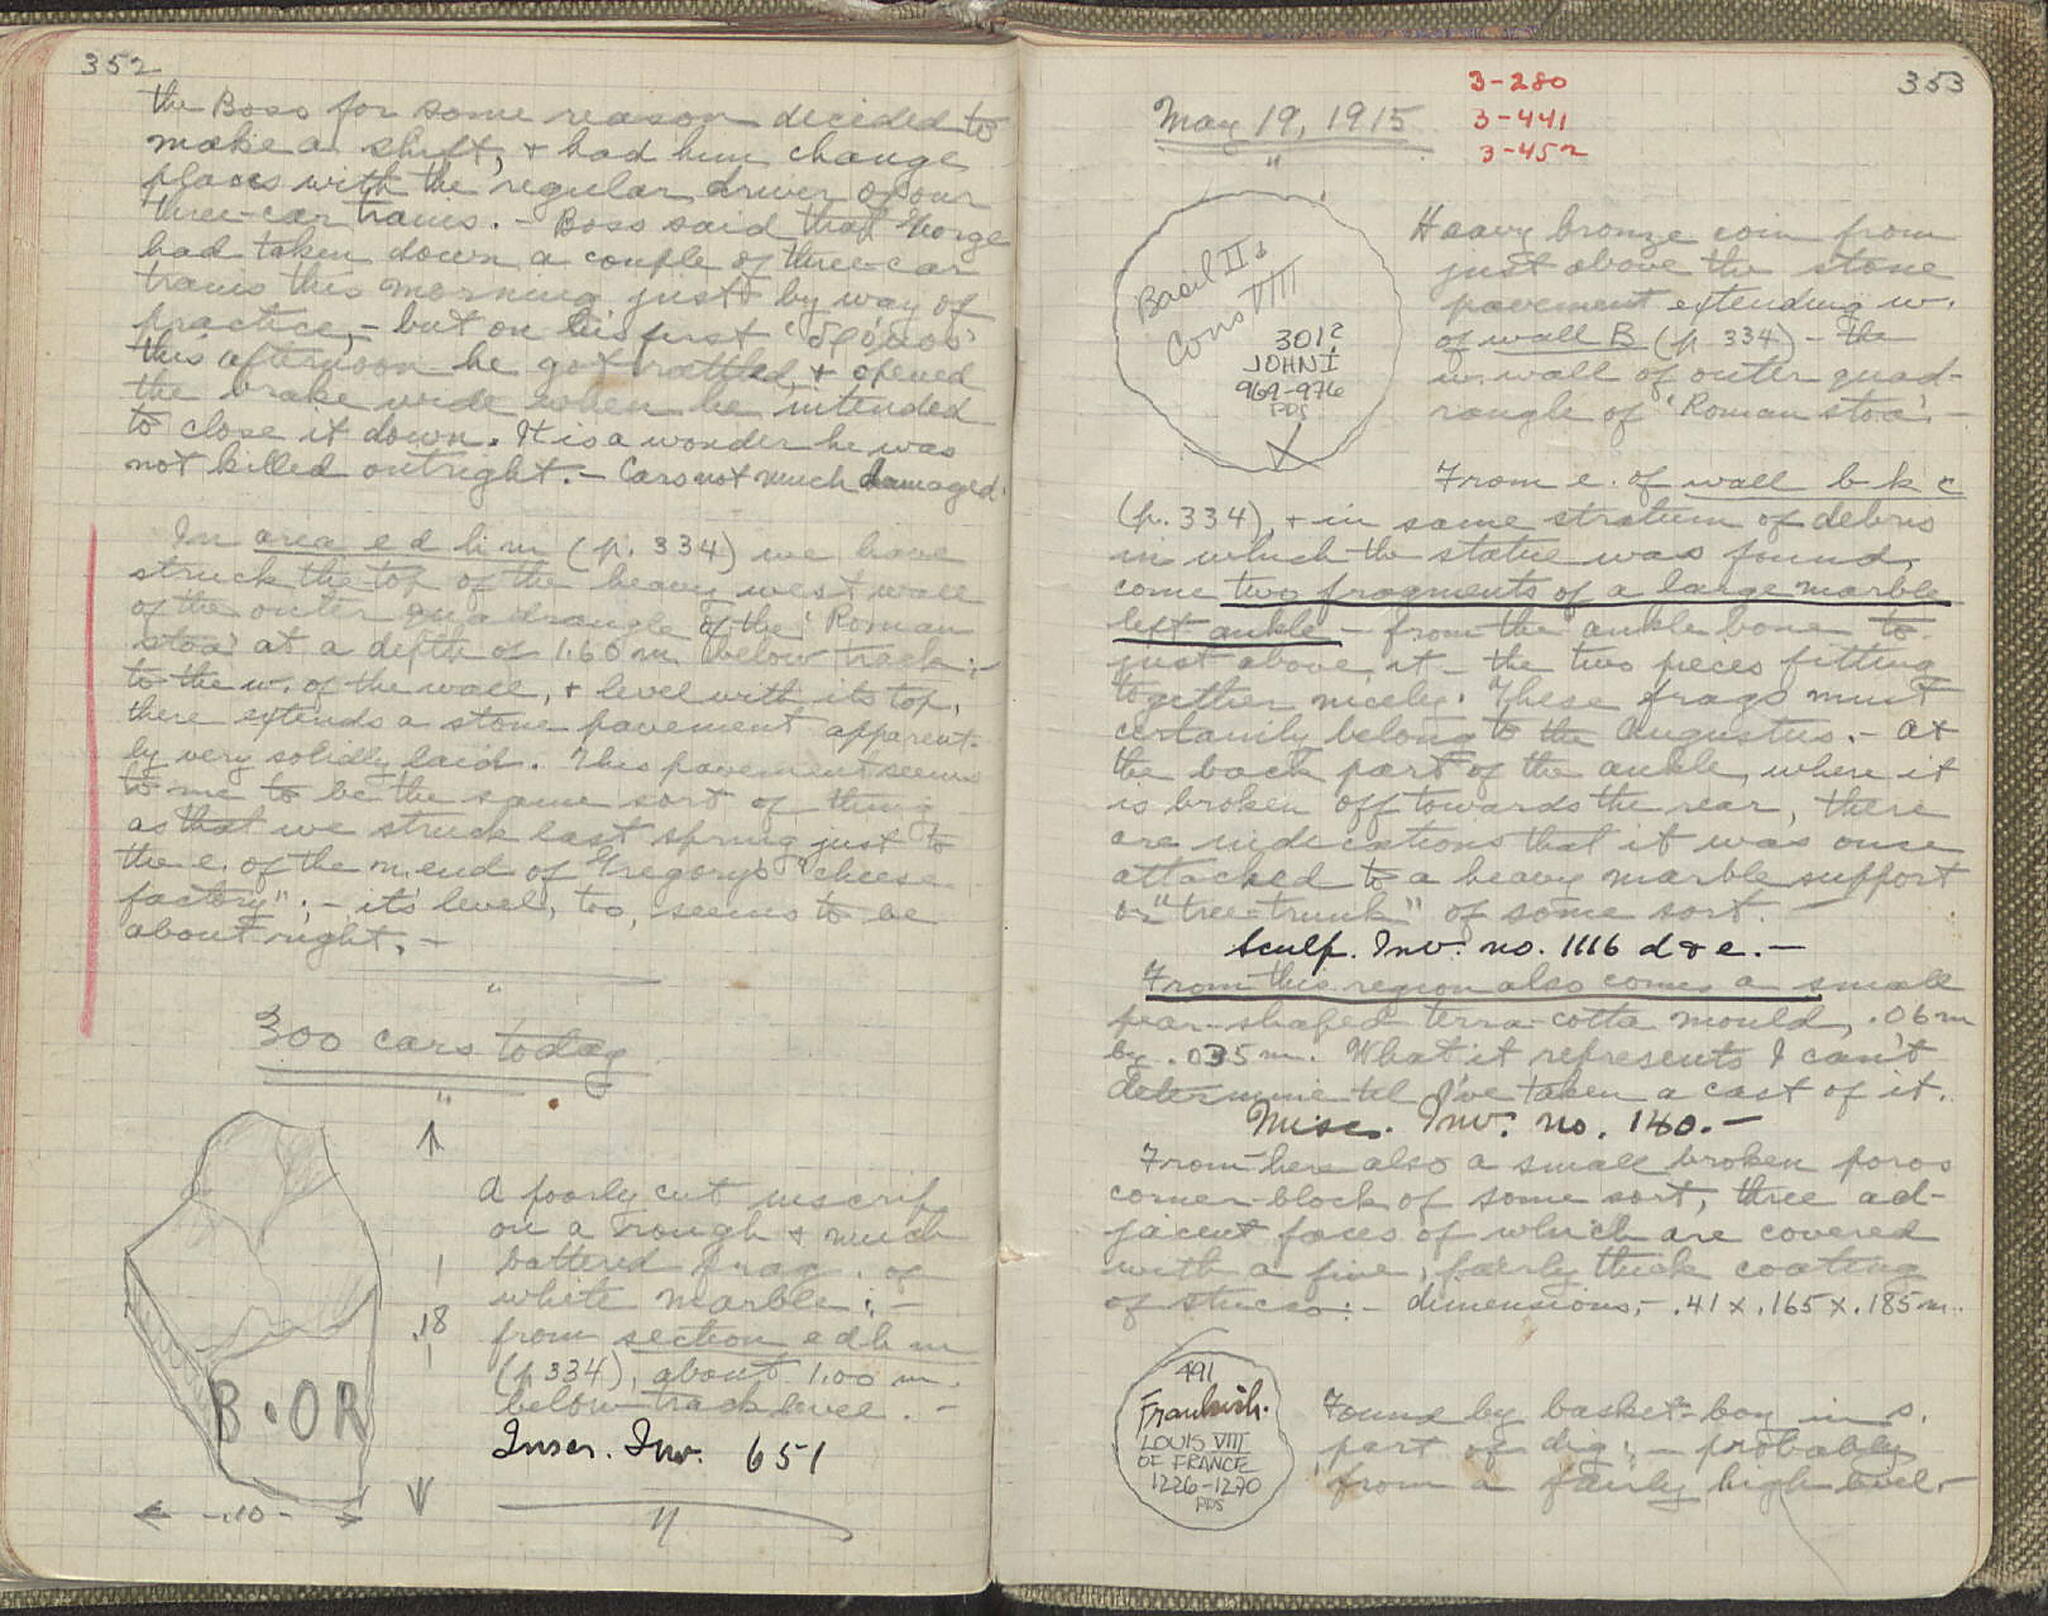 352
the Boss for some reason decided to
make a shift, & had him change
places with the regular driver of our
three-car trains. - Boss said that George
had taken down a couple of three-car
trains this morning just by way of
practice, - but on his first 'δρόμος'
this afternoon he got rattled, & opened
the brake wide when he intended
to close it down. It is a wonder he was
not killed outright. - Cars not much damaged.
In area e d h m (p. 334) we have
struck the top of the heavy west wall
of the outer quadrangle of the 'Roman
stoa' at a depth of 1.60 m below track; -
to the w. of the wall, & level with its top,
there extends a stone pavement apparent-
ly very solidly laid. This pavement seems
to me to be the same sort of thing
as that we struck last spring just to
the e. of the n. end of Gregory's "cheese
factory"; - it's level, too, seems to be
about right. -
"
300 cars today
"
B · OR
.18
.10
A poorly cut inscrip.
on a rough & much
battered frag. of
white marble; -
from section e d h m
(p 334), about 1.00 m.
below track level. -
Inscr. Inv. 651
"
353
3-280
3-441
3-452
May 19, 1915
"
Basil II &
Cons VIII
301?
JOHN I
969-976
PDS
Heavy bronze coin from
just above the stone
pavement extending w.
of wall B (p. 334) - the
w. wall of outer quad-
rangle of 'Roman stoa'. -
From e. of wall b k c
(p. 334), & in same stratum of debris
in which the statue was found,
come two fragments of a large marble
left ankle - from the ankle bone to
just above it - the two pieces fitting
together nicely. These frags must
certainly belong to the Augustus. - At
the back part of the ankle, where it
is broken off towards the rear, there
are indications that it was once
attached to a heavy marble support
or "tree-trunk" of some sort. -
Sculp. Inv. no. 1116 d & e. -
From this region also comes a small
pear-shaped terra-cotta mould, .06 m
by .035 m. What it represents I can't
determine til I've taken a cast of it.
Misc. Inv. no. 140. -
From here also a small broken poros
corner-block of some sort, three ad-
jacent faces of which are covered
with a fine, fairly thick coating
of stucco; - dimensions, - .41 x .165 x .185 m.
491
Frankish.
LOUIS VIII
OF FRANCE
1226-1270
PDS
Found by basket-boy in s.
part of dig; - probably
from a fairly high level. -